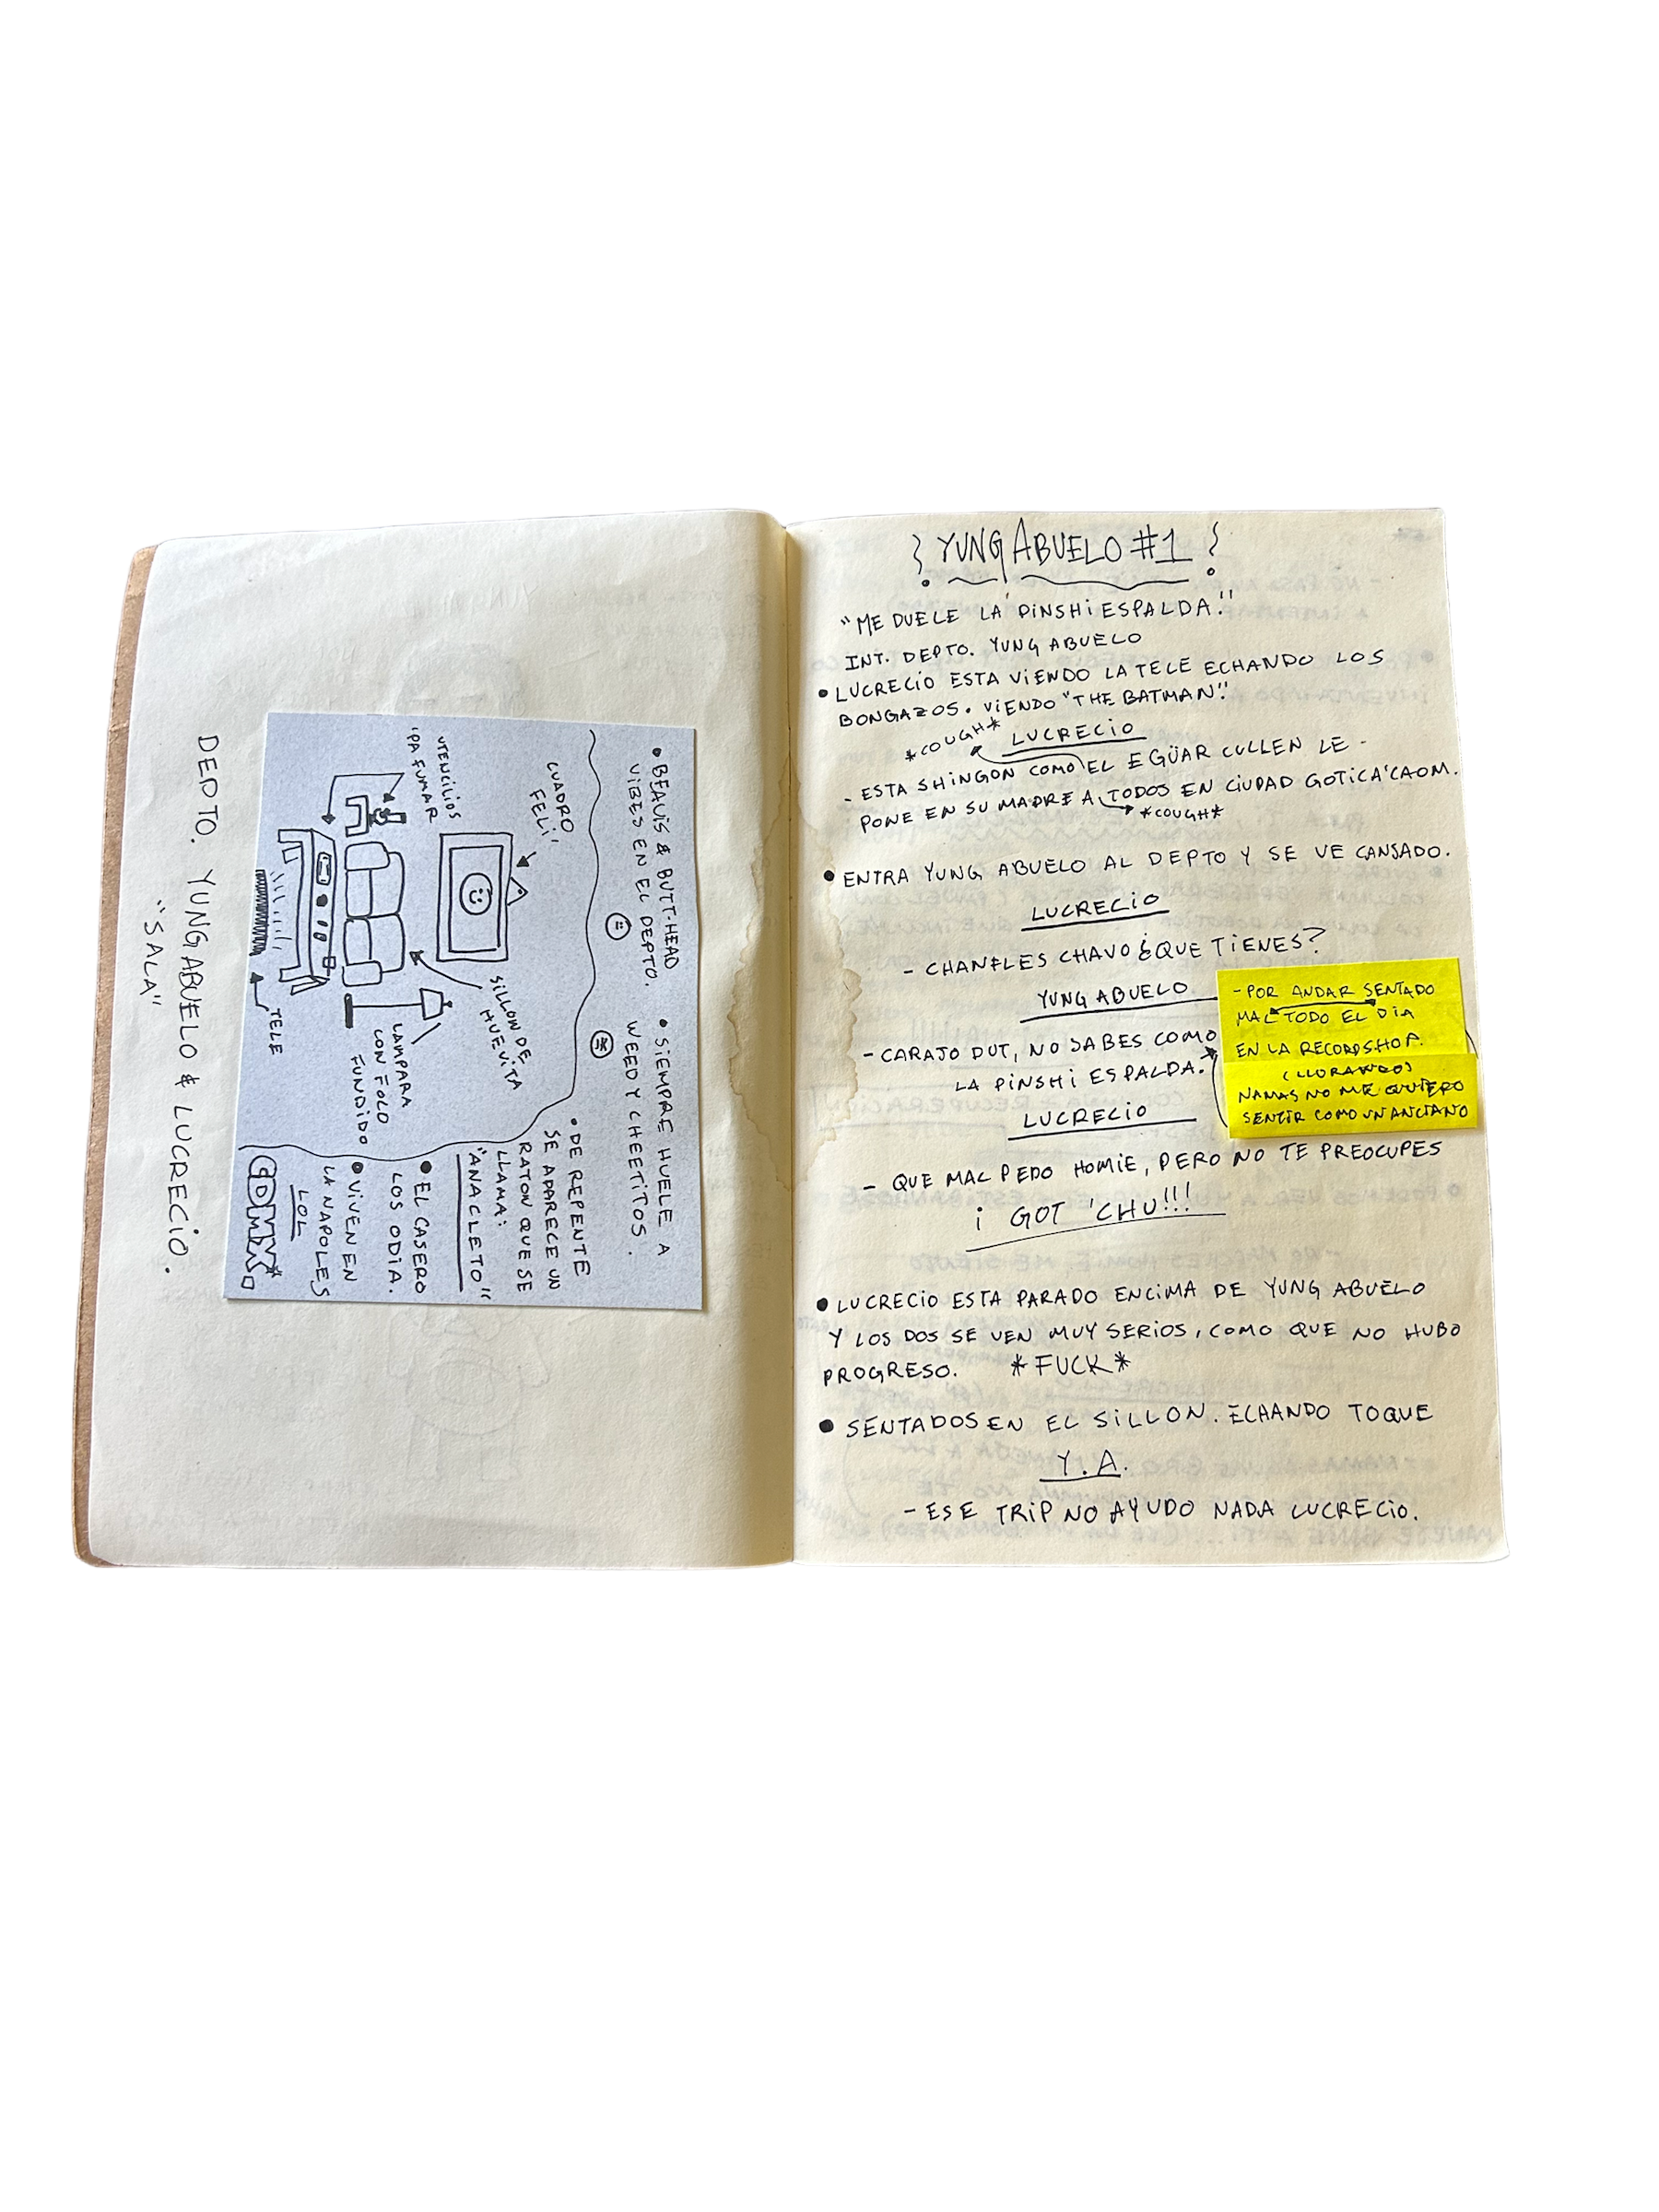 DEPTO. YUNG ABUELO & LUCRECIO.
"SALA"
• BEAVIS & BUTT-HEAD
VIBES EN EL DEPTO.
• SIEMPRE HUELE A
WEED Y CHEETITOS.
CUADRO
FELI!
UTENCILIOS
'PA FUMAR
SILLON DE
HUEVITA
LAMPARA
CON FOCO
FUNDIDO
TELE
• DE REPENTE
SE APARECE UN
RATON QUE SE
LLAMA:
"ANACLETO"
• EL CASERO
LOS ODIA.
• VIVEN EN
LA NAPOLES
LOL
CDMX*
YUNG ABUELO #1
"ME DUELE LA PINSHI ESPALDA."
INT. DEPTO. YUNG ABUELO
• LUCRECIO ESTA VIENDO LA TELE ECHANDO LOS
BONGAZOS. VIENDO "THE BATMAN".
*COUGH*
LUCRECIO
- ESTA SHINGON COMO EL EGÜAR CULLEN LE -
PONE EN SU MADRE A TODOS EN CIUDAD GOTICA 'CAOM.
*COUGH*
• ENTRA YUNG ABUELO AL DEPTO Y SE VE CANSADO.
LUCRECIO
- CHANFLES CHAVO ¿QUE TIENES?
YUNG ABUELO
- CARAJO DUT, NO SABES COMO
LA PINSHI ESPALDA.
- POR ANDAR SENTADO
MAL TODO EL DIA
EN LA RECORDSHOP.
(LLORANDO)
NAMAS NO ME QUIERO
SENTIR COMO UN ANCIANO
LUCRECIO
- QUE MAL PEDO HOMIE, PERO NO TE PREOCUPES
i GOT 'CHU!!!
• LUCRECIO ESTA PARADO ENCIMA DE YUNG ABUELO
Y LOS DOS SE VEN MUY SERIOS, COMO QUE NO HUBO
PROGRESO. *FUCK*
• SENTADOS EN EL SILLON. ECHANDO TOQUE
Y.A.
- ESE TRIP NO AYUDO NADA LUCRECIO.